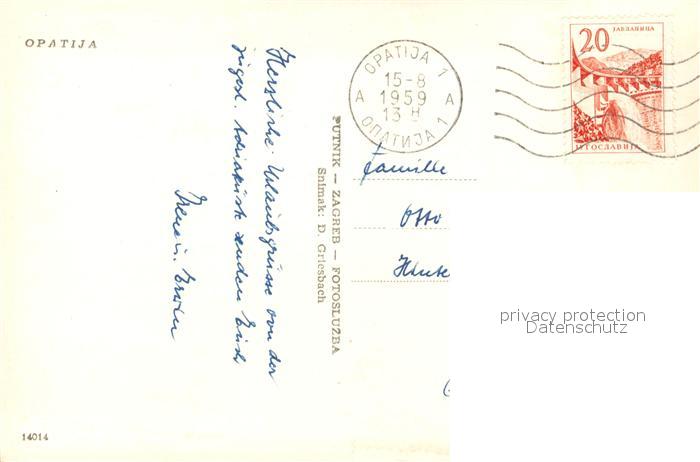 OPATIJA
Herzliche Urlaubsgrüsse von der
jugosl. Adriaküste senden Euch
Irene u. Erwin
14014
PUTNIK — ZAGREB — FOTOSLUŽBA
Snimak: D. Griesbach
OPATIJA 1
15-8
1959
13 H
A A
ОПАТИЈА 1
20
ЈАБЛАНИЦА
JУГОСЛАВИЈА
Familie
Otto
privacy protection
Datenschutz